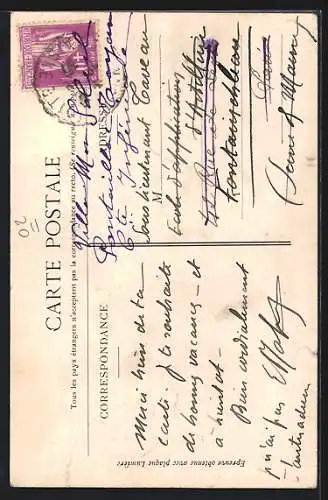 CARTE POSTALE
Tous les pays étrangers n'acceptent pas la correspondance au recto. (Se renseigner
CORRESPONDANCE
ADRESSE
Merci bien de ta
carte. Je te souhaite
de bonnes vacances et
à bientôt.
Bien cordialement
Villa Mon
Pontaillac Royan
Cte Infre
M
Sous lieutenant Caveau
Ecole d'application
d'Artillerie
Fontainebleau
Seine et Marne
Epreuve obtenue avec plaque Lumière
02